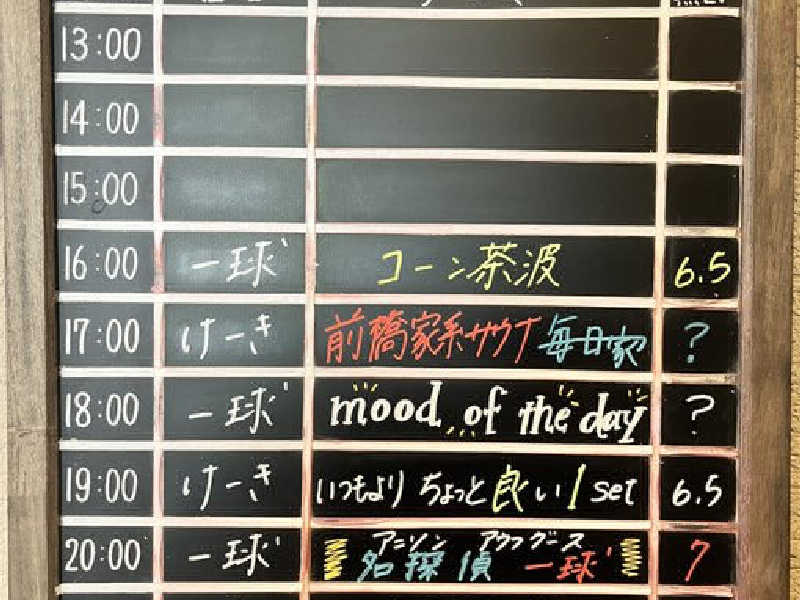 13:00
14:00
15:00
16:00 一球 コーン茶波 6.5
17:00 けーき 前橋家系サウナ 毎日家 ?
18:00 一球 mood of the day ?
19:00 けーき いつもより ちょっと良い1set 6.5
アニソン アウフグース
20:00 一球 名探偵 一球 7